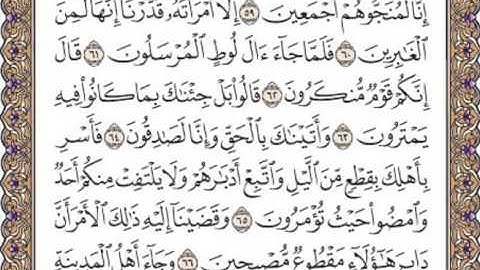 إِنَّا لَمُنَجُّوهُمْ أَجْمَعِينَ ٥٩ إِلَّا ٱمْرَأَتَهُۥ قَدَّرْنَآ إِنَّهَا لَمِنَ
ٱلْغَٰبِرِينَ ٦٠ فَلَمَّا جَآءَ ءَالَ لُوطٍ ٱلْمُرْسَلُونَ ٦١ قَالَ
إِنَّكُمْ قَوْمٌ مُّنكَرُونَ ٦٢ قَالُوا۟ بَلْ جِئْنَٰكَ بِمَا كَانُوا۟ فِيهِ
يَمْتَرُونَ ٦٣ وَأَتَيْنَٰكَ بِٱلْحَقِّ وَإِنَّا لَصَٰدِقُونَ ٦٤ فَأَسْرِ
بِأَهْلِكَ بِقِطْعٍ مِّنَ ٱلَّيْلِ وَٱتَّبِعْ أَدْبَٰرَهُمْ وَلَا يَلْتَفِتْ مِنكُمْ أَحَدٌ
وَٱمْضُوا۟ حَيْثُ تُؤْمَرُونَ ٦٥ وَقَضَيْنَآ إِلَيْهِ ذَٰلِكَ ٱلْأَمْرَ أَنَّ
دَابِرَ هَٰٓؤُلَآءِ مَقْطُوعٌ مُّصْبِحِينَ ٦٦ وَجَآءَ أَهْلُ ٱلْمَدِينَةِ